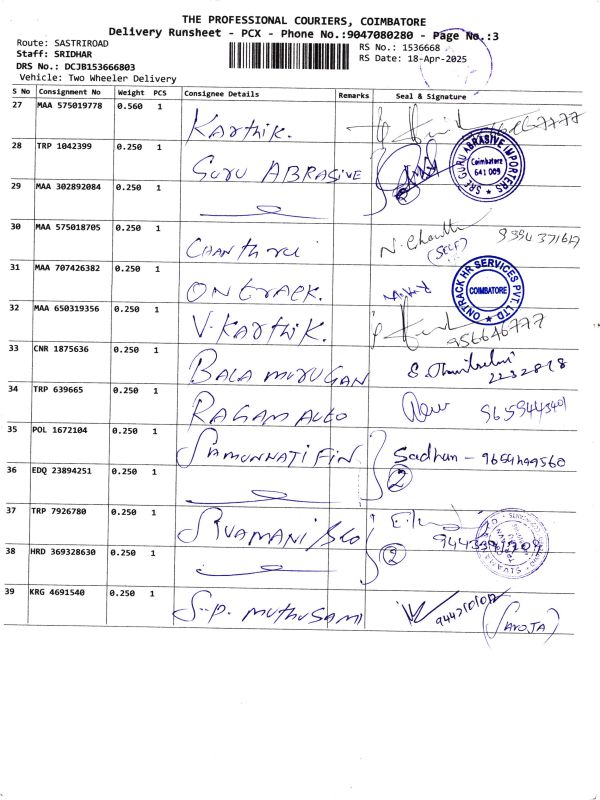 THE PROFESSIONAL COURIERS, COIMBATORE
Delivery Runsheet - PCX - Phone No.:9047080280 - Page No.:3
Route: SASTRIROAD
Staff: SRIDHAR
DRS No.: DCJB153666803
Vehicle: Two Wheeler Delivery
RS No.: 1536668
RS Date: 18-Apr-2025
S No Consignment No Weight PCS Consignee Details Remarks Seal & Signature
27 MAA 575019778 0.560 1 Karthik.
28 TRP 1042399 0.250 1 GURU ABRASIVE
SRI GURU ABRASIVE IMPORTERS
Coimbatore
641 009
29 MAA 302892084 0.250 1
30 MAA 575018705 0.250 1
(SELF)
31 MAA 707426382 0.250 1 ONTRACK.
ONTRACK HR SERVICES PVT. LTD
COIMBATORE
32 MAA 650319356 0.250 1 V. Karthik.
956646777
33 CNR 1875636 0.250 1 BALAMURUGAN
2232818
34 TRP 639665 0.250 1 RAGAM AUTO
9659443401
35 POL 1672104 0.250 1 SAMUNNATI FIN Sadhan - 9659499560
36 EDQ 23894251 0.250 1 2
37 TRP 7926780 0.250 1
38 HRD 369328630 0.250 1 2
39 KRG 4691540 0.250 1 S.P. MUTHUSAMI
(SAROJA)